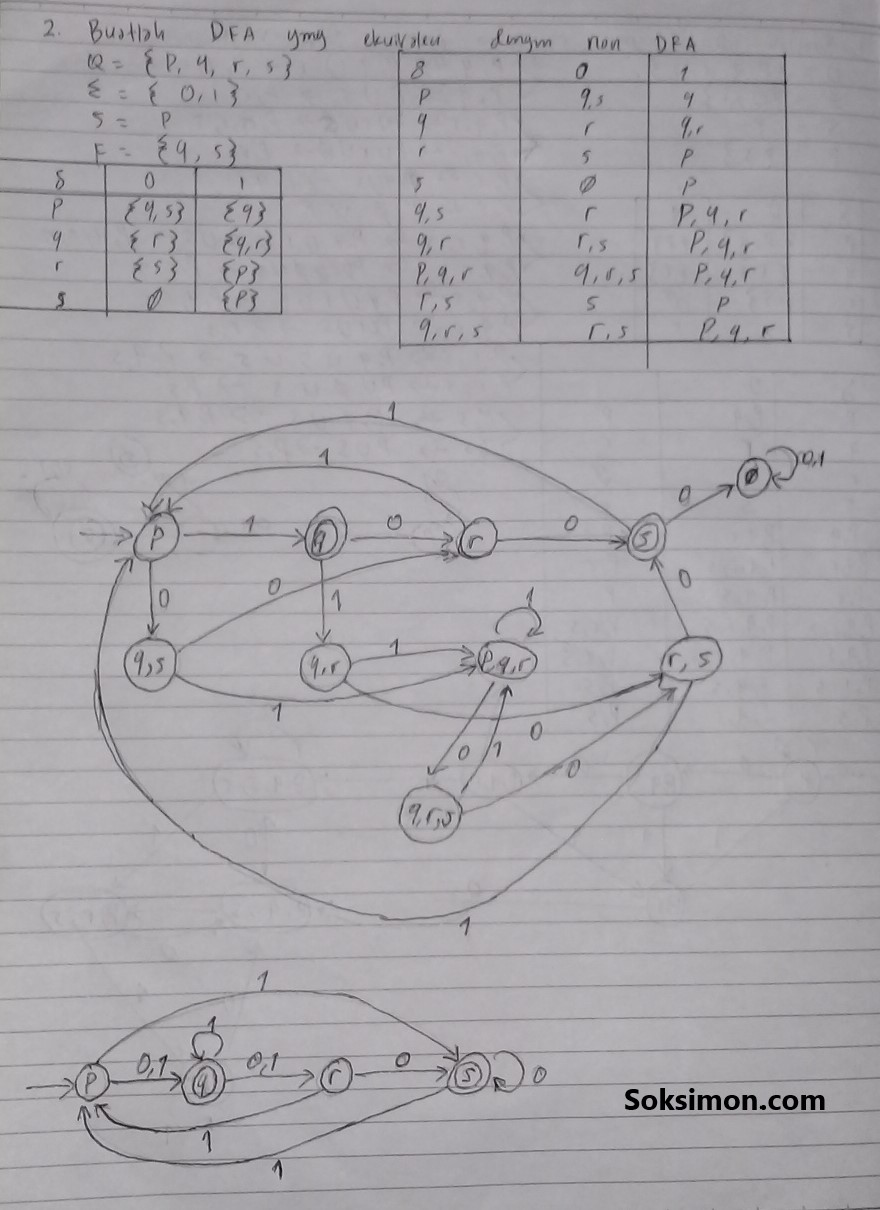 2. Buatlah DFA yang ekuivalen dengan non DFA
Q = {P, q, r, s}
Σ = {0,1}
S = P
F = {q, s}
δ 0 1
P {q,s} {q}
q {r} {q,r}
r {s} {P}
s ∅ {P}
δ 0 1
P q,s q
q r q,r
r s P
s ∅ P
q,s r P, q, r
q,r r,s P, q, r
P, q, r q, r, s P, q, r
r, s s P
q, r, s r, s P, q, r
1
1
0
∅
0,1
P
1
q
0
r
0
s
0
0
1
0
1
q,s
q,r
1
P,q,r
r, s
1
0
0
1
0
q,r,s
1
1
1
P
0,1
q
0,1
r
0
s
0
1
1
Soksimon.com